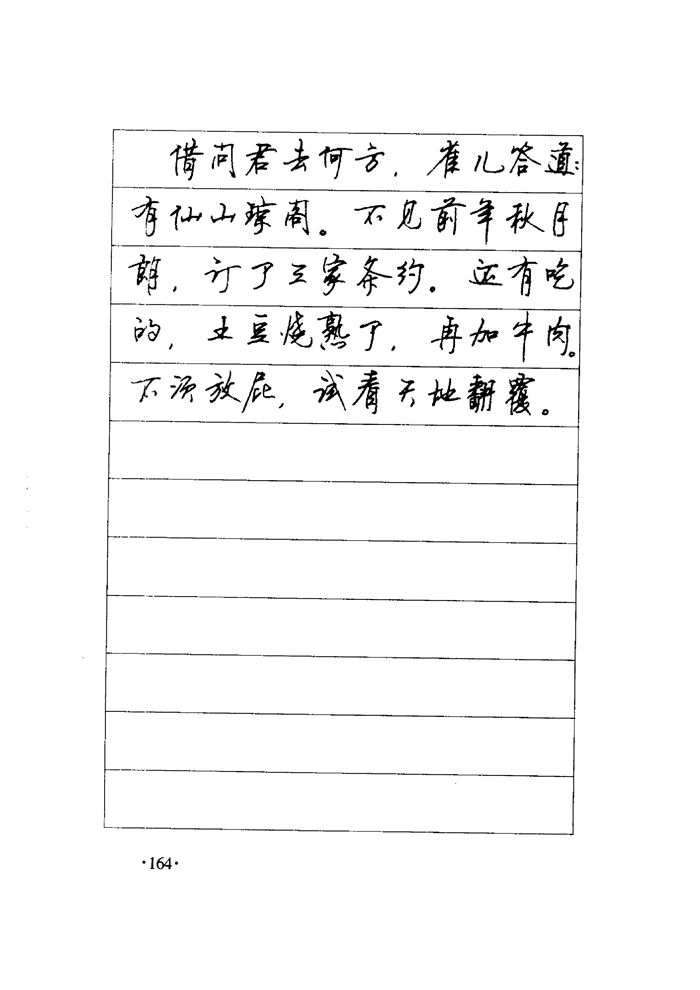 借问君去何方，雀儿答道：
有仙山琼阁。不见前年秋月
朗，订了三家条约。还有吃
的，土豆烧熟了，再加牛肉。
不须放屁，试看天地翻覆。
·164·